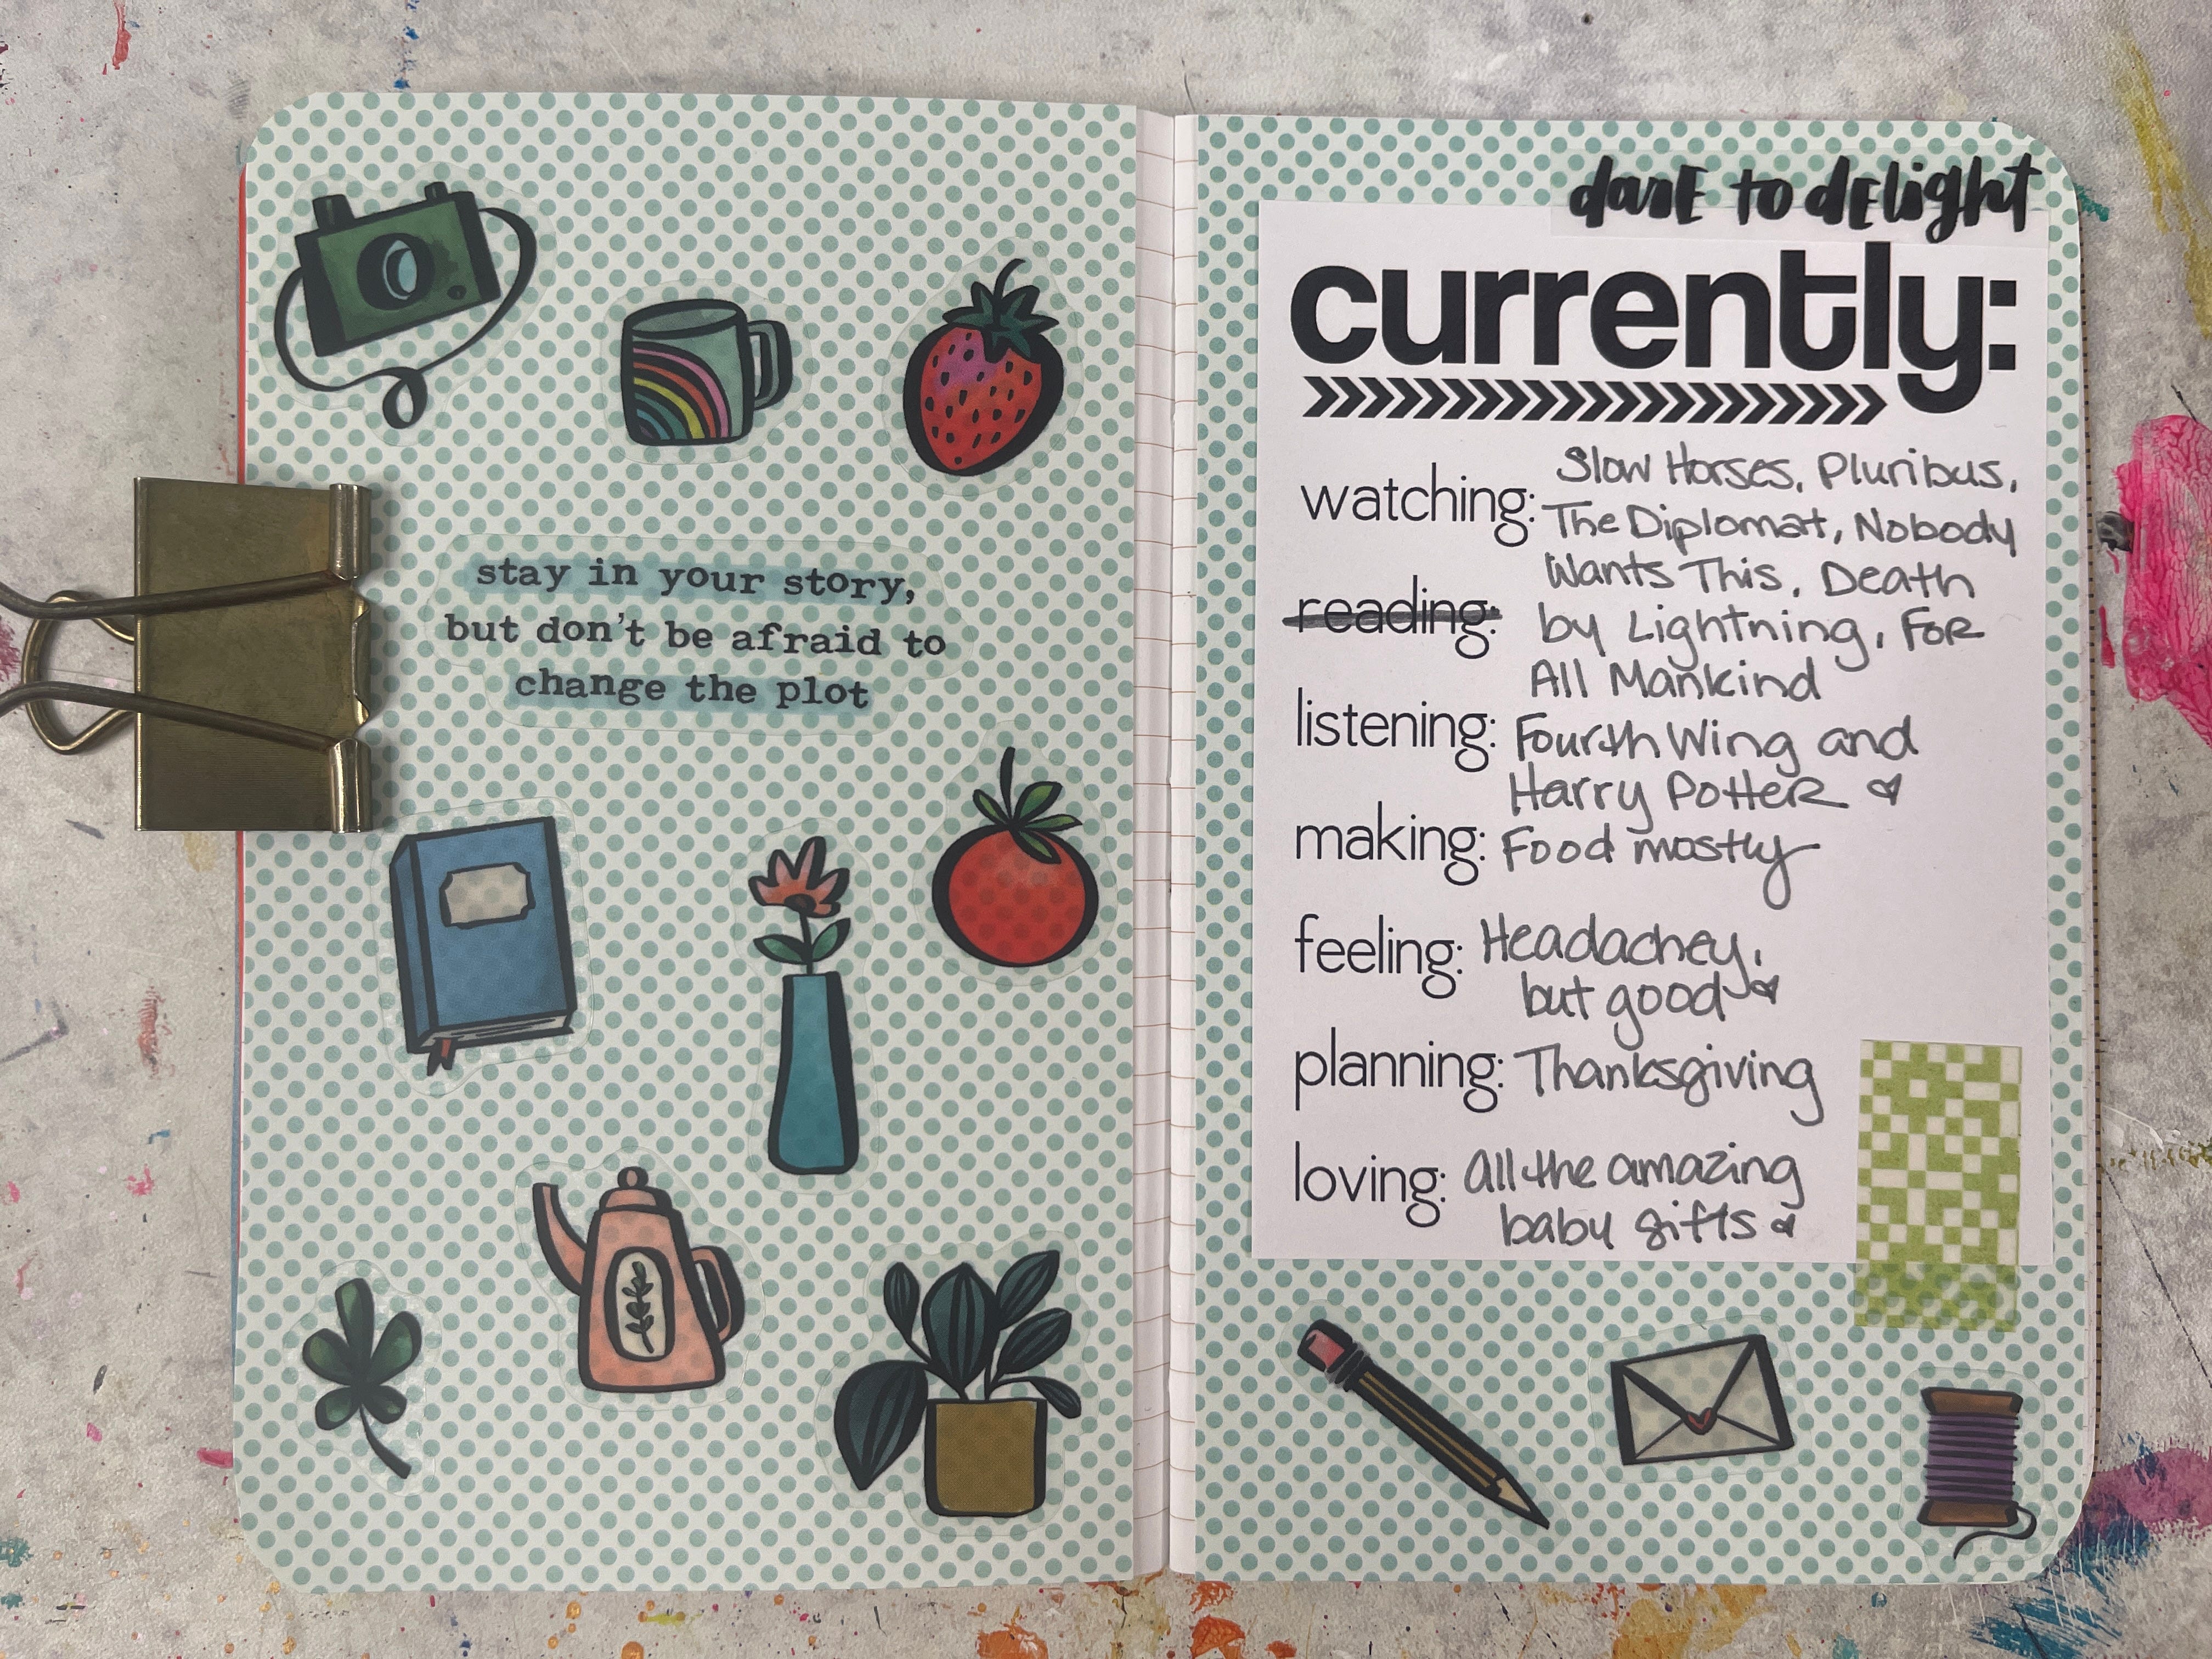 stay in your story,
but don't be afraid to
change the plot
darE to dElight
currently:
watching: Slow Horses, Pluribus,
The Diplomat, Nobody
Wants This, Death
reading: by Lightning, For
All Mankind
listening: Fourth Wing and
Harry Potter
making: Food mostly
feeling: Headachey,
but good
planning: Thanksgiving
loving: All the amazing
baby gifts